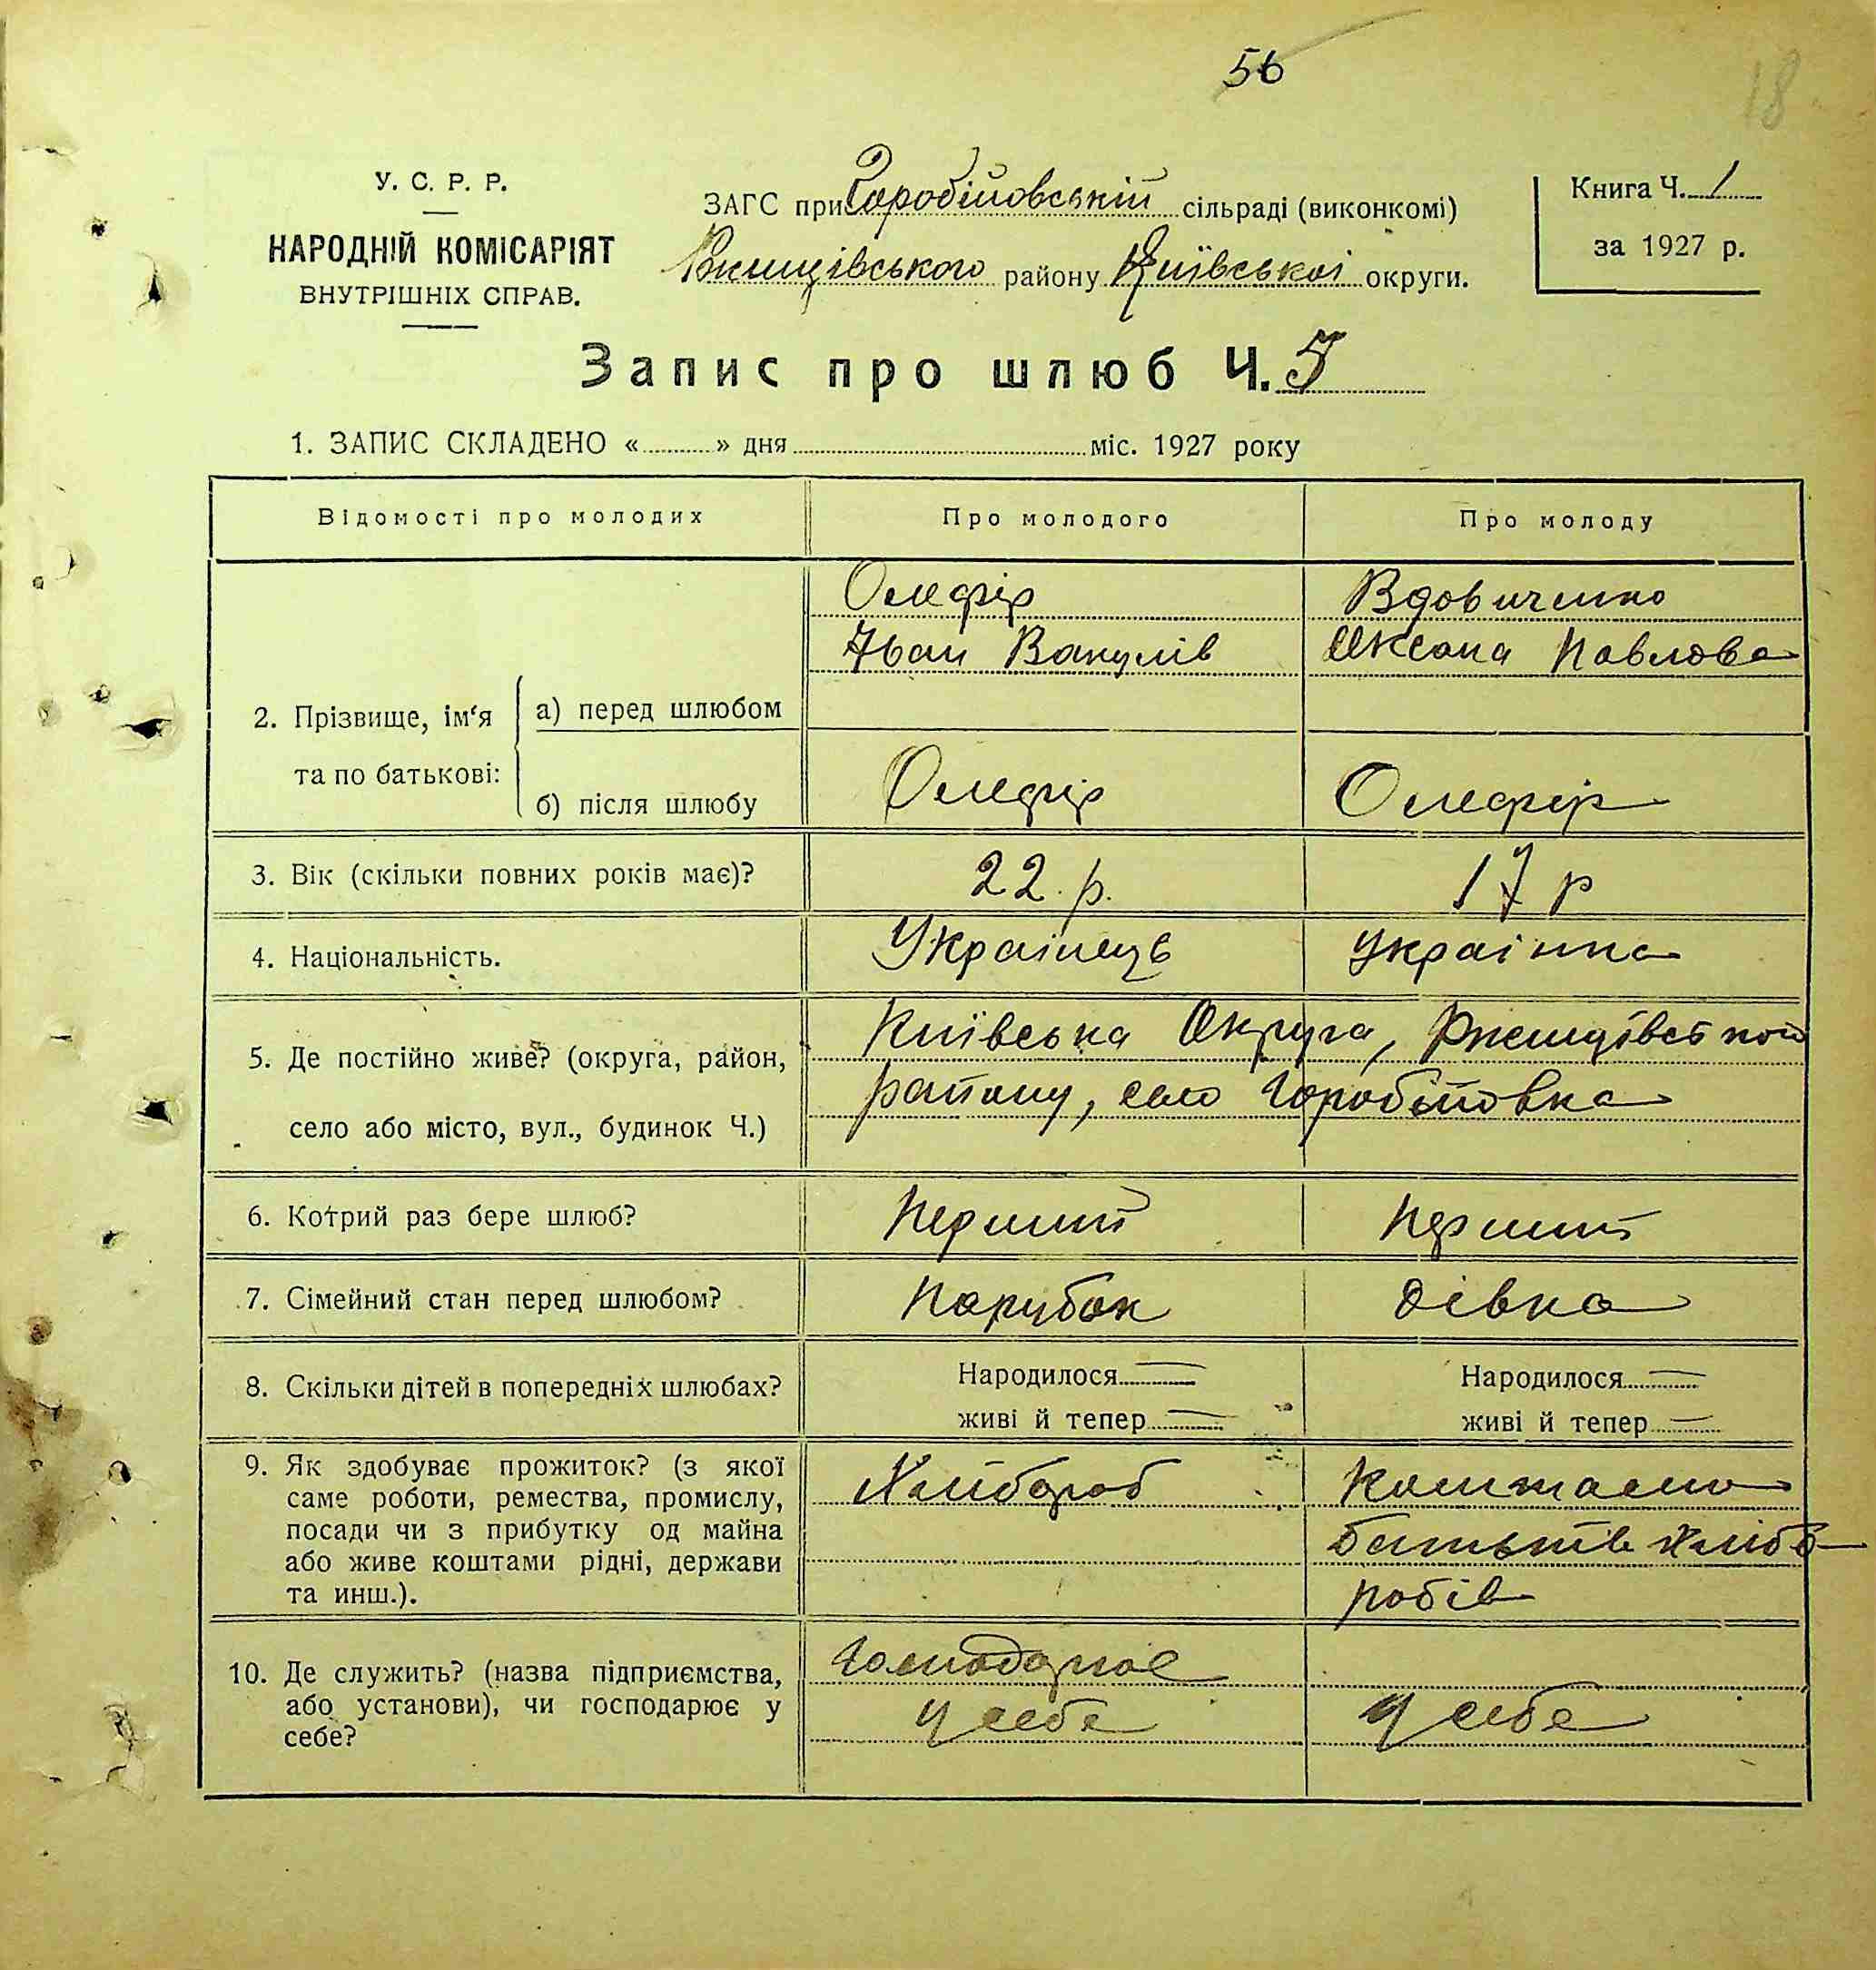 56
18
У. С. Р. Р.
НАРОДНІЙ КОМІСАРІЯТ
ВНУТРІШНІХ СПРАВ.
ЗАГС при Горобіювській сільраді (виконкомі)
Ржищівського району Київської округи.
Книга Ч. 1
за 1927 р.
Запис про шлюб Ч. 5
1. ЗАПИС СКЛАДЕНО « » дня міс. 1927 року
Відомості про молодих Про молодого Про молоду
2. Прізвище, ім‘я та по батькові:
а) перед шлюбом
Олефір
Іван Вакулів
Вдовиченко
Оксана Павлова
б) після шлюбу Олефір Олефір
3. Вік (скільки повних років має)? 22 р. 17 р
4. Національність. Українець Українка
5. Де постійно живе? (округа, район,
село або місто, вул., будинок Ч.)
Київська Округа, Ржищівського
району, село Горобіювка
6. Котрий раз бере шлюб? Перший Перший
7. Сімейний стан перед шлюбом? Парубок Дівка
8. Скільки дітей в попередніх шлюбах?
Народилося — Народилося —
живі й тепер — живі й тепер —
9. Як здобуває прожиток? (з якої
саме роботи, ремества, промислу,
посади чи з прибутку од майна
або живе коштами рідні, держави
та инш.).
Хлібороб
Коштами
батьків хлібо-
робів
10. Де служить? (назва підприємства,
або установи), чи господарює у
себе?
Господарює
у себе
у себе